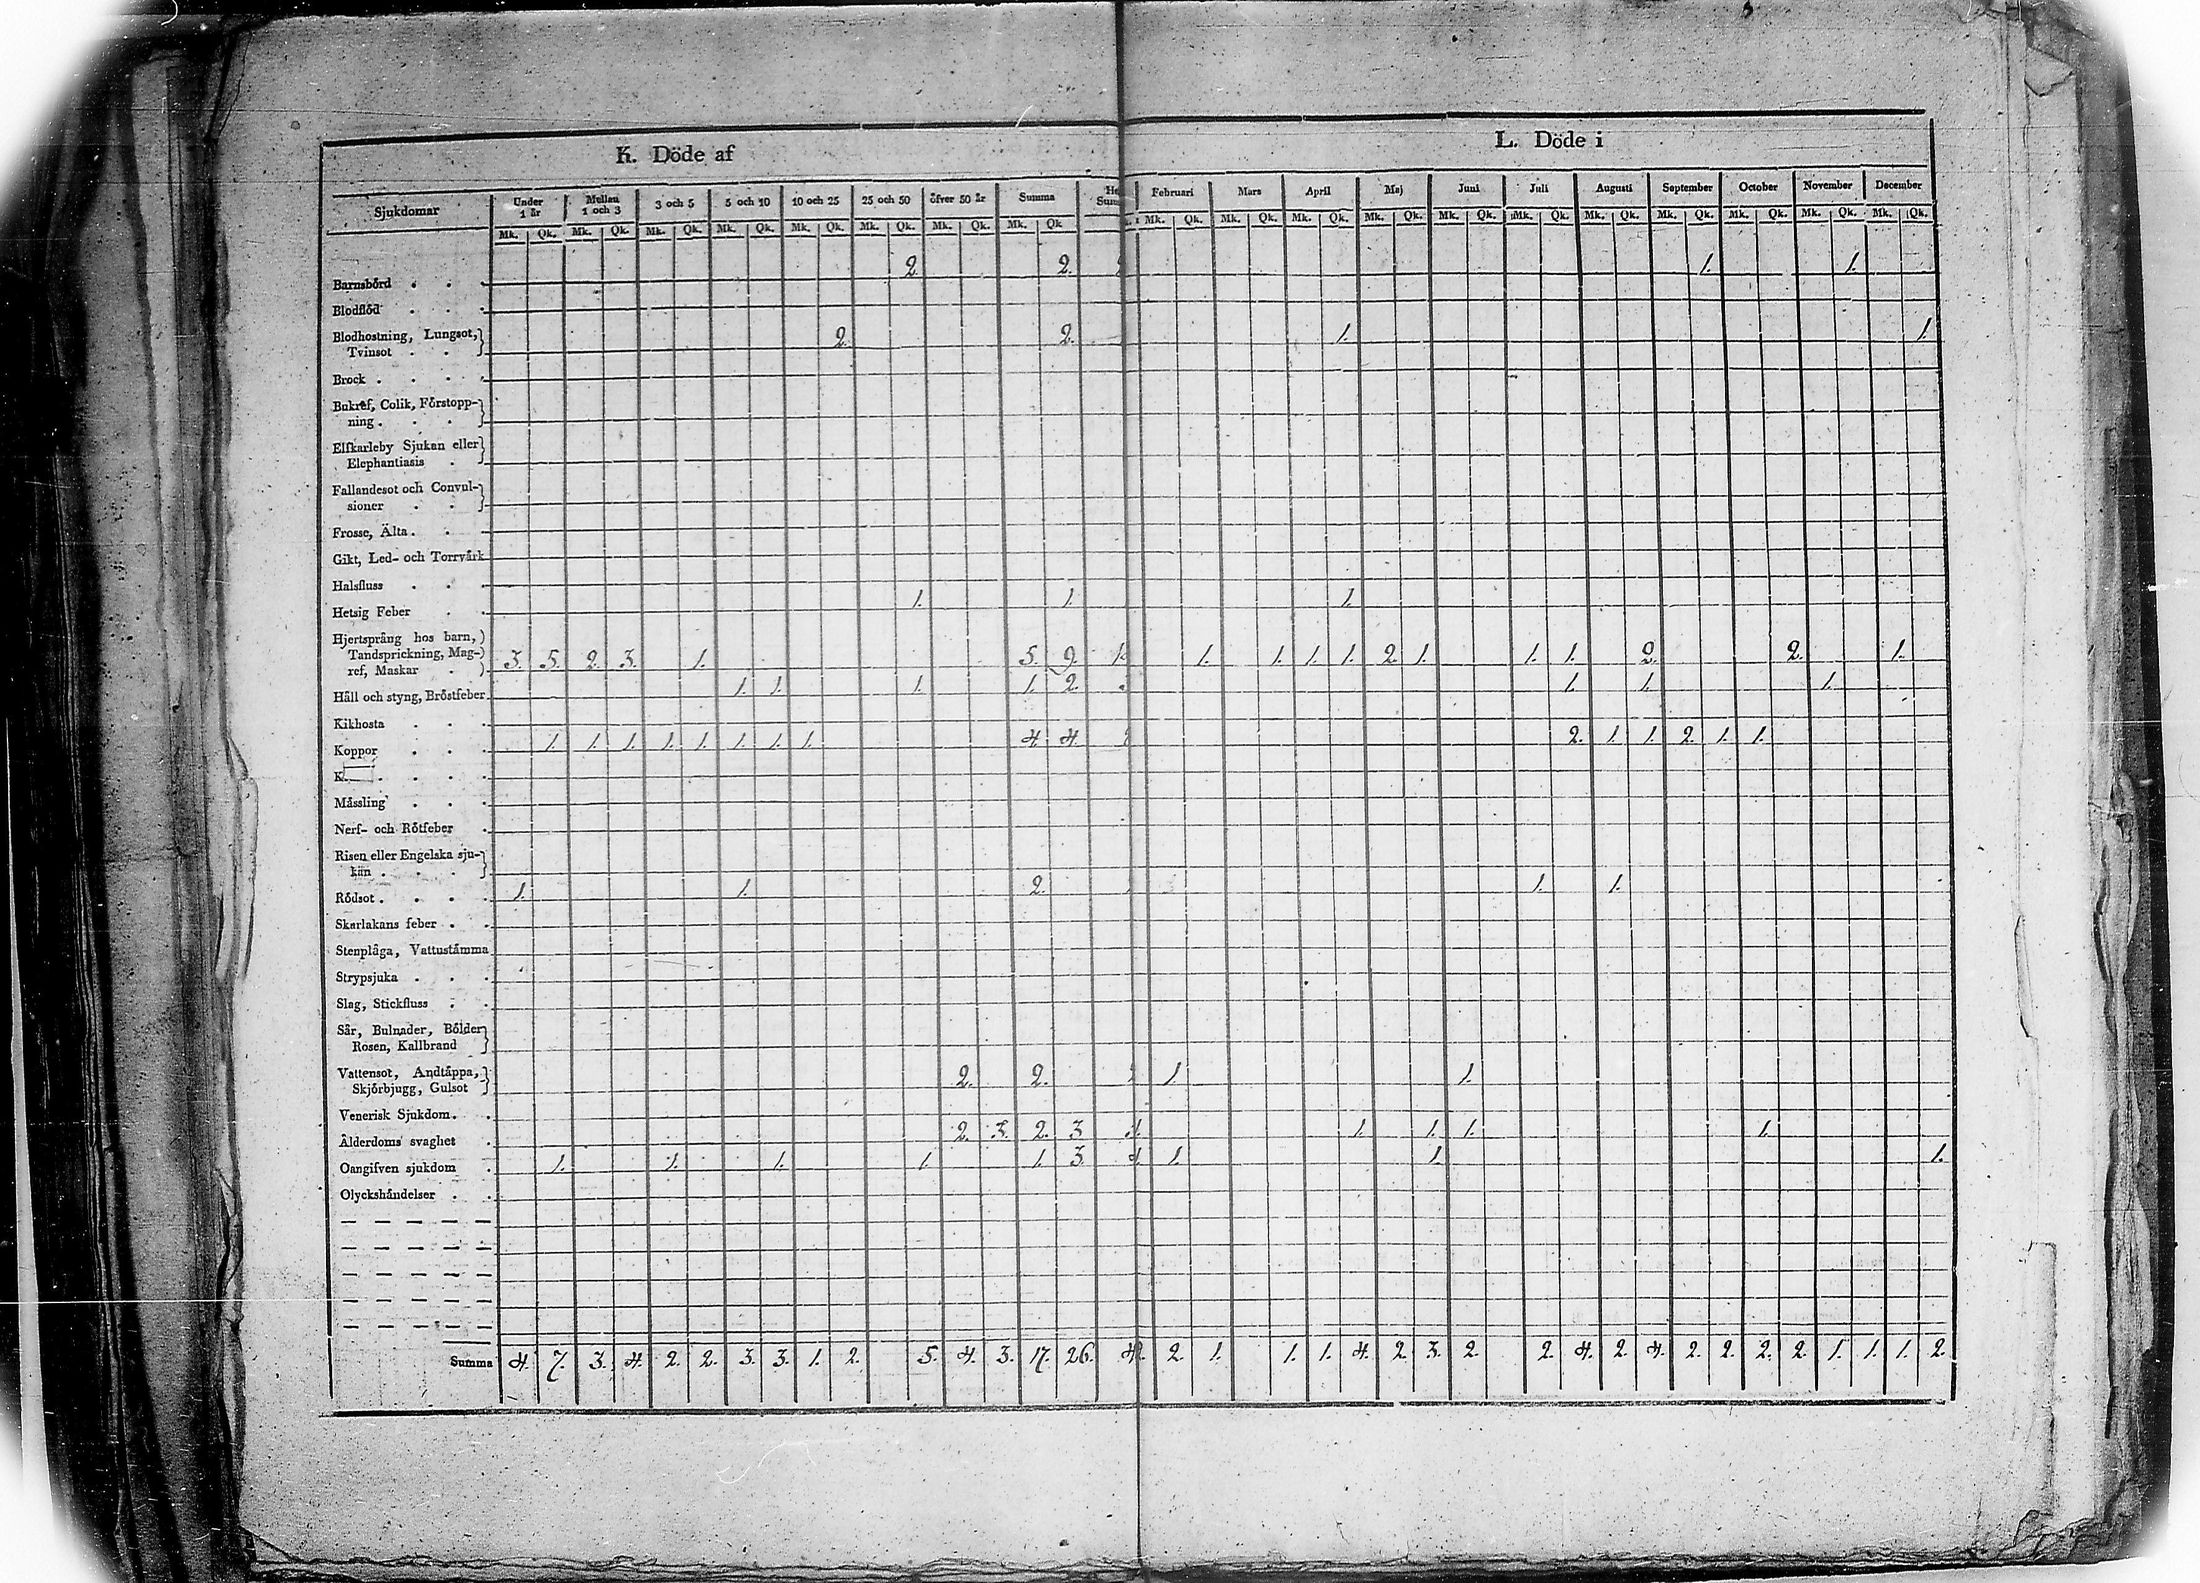 K. Döde af
L. Döde i
Sjukdomar Under 1 år Mellan 1 och 3 3 och 5 5 och 10 10 och 25 25 och 50 öfver 50 år Summa
Februari Mars April Maj Juni Juli Augusti September October November December
Mk. Qk. Mk. Qk. Mk. Qk. Mk. Qk. Mk. Qk. Mk. Qk. Mk. Qk. Mk. Qk
Mk. Qk. Mk. Qk. Mk. Qk. Mk. Qk. Mk. Qk. Mk. Qk. Mk. Qk. Mk. Qk. Mk. Qk. Mk. Qk. Mk. Qk.
Barnsbörd . . . 2. 2. 1. 1.
Blodflöd . . .
Blodhostning, Lungsot,
Tvinsot . . . 2. 2. 1. 1.
Brock . . . .
Bukref, Colik, Förstopp-
ning . . .
Elfkarleby Sjukan eller
Elephantiasis .
Fallandesot och Convul-
sioner . .
Frosse, Älta . . .
Gikt, Led- och Torrvårk
Halsfluss . . .
Hetsig Feber . . 1. 1. 1.
Hjertsprång hos barn,
Tandsprickning, Mag-
ref, Maskar . 3. 5. 2. 3. 1. 5. 9. 1. 1. 1. 1. 2. 1. 1. 1. 2. 2. 1.
Håll och styng, Bröstfeber 1. 1. 1. 1. 2. 1. 1. 1.
Kikhosta . . .
Koppor . . . 1. 1. 1. 1. 1. 1. 1. 1. 4. 4. 2. 1. 1. 2. 1. 1.
K . . . .
Måssling . . .
Nerf- och Rötfeber .
Risen eller Engelska sju-
kan . . . .
Rödsot . . . . 1. 1. 2. 1. 1.
Skarlakans feber . .
Stenplåga, Vattuståmma
Strypsjuka . . .
Slag, Stickfluss . .
Sår, Bulnader, Bölder
Rosen, Kallbrand
Vattensot, Andtåppa,
Skjörbjugg, Gulsot 2. 2. 1. 1.
Venerisk Sjukdom . .
Ålderdoms svaghet . 2. 3. 2. 3 1. 1. 1. 1.
Oangifven sjukdom . 1. 1. 1. 1. 1. 3. 4. 1. 1. 1.
Olyckshåndelser . .
Summa 4. 7. 3. 4. 2. 2. 3. 3. 1. 2. 5. 4. 3. 17. 26. 2. 1. 1. 1. 4. 2. 3. 2. 2. 4. 2. 4. 2. 2. 2. 2. 1. 1. 1. 2.